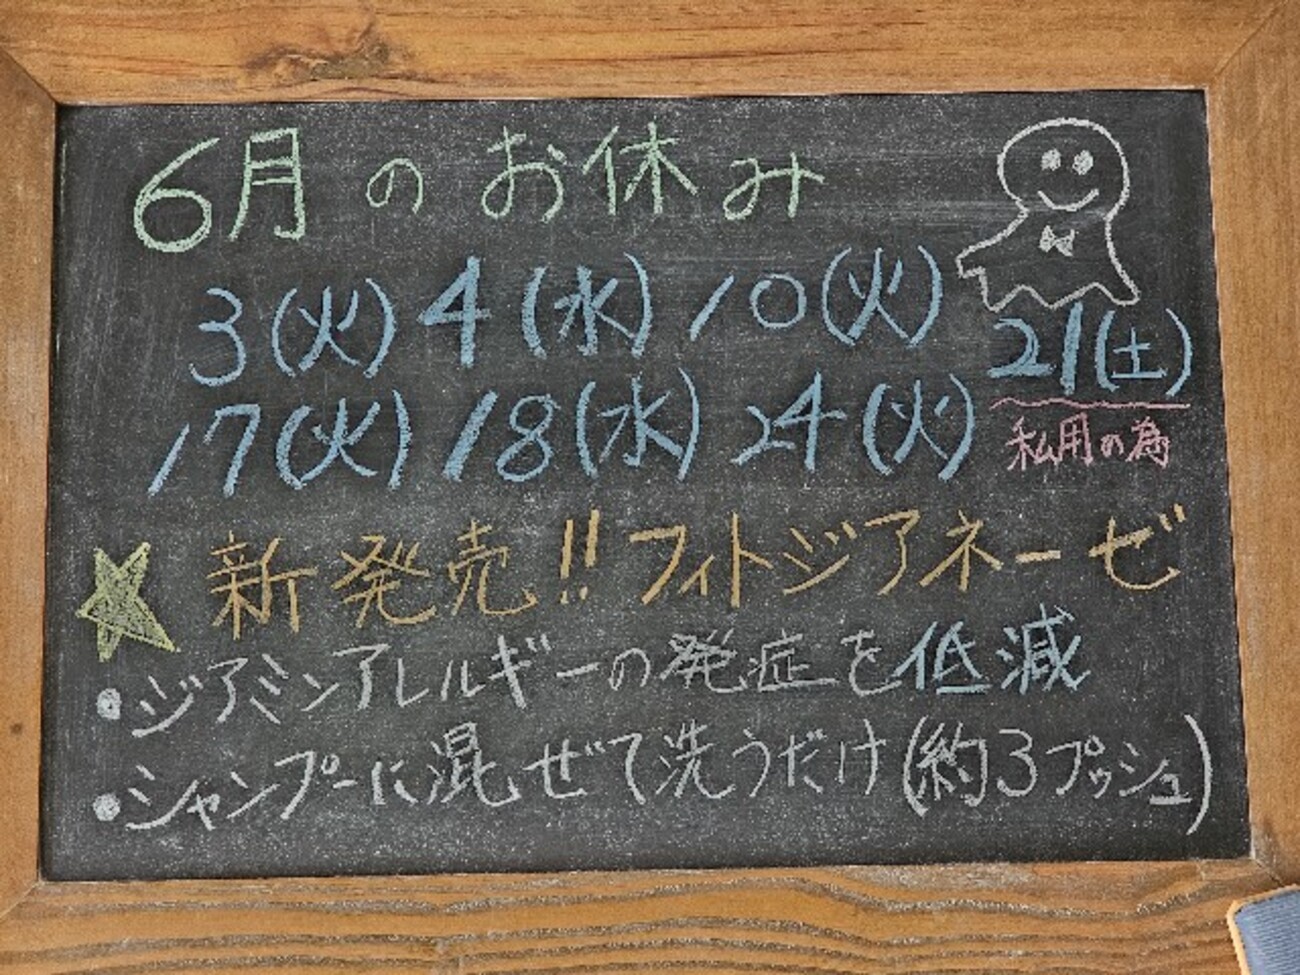 6月のお休み
3(火) 4(水) 10(火)
17(火) 18(水) 24(火)
21(土)
私用の為
新発売!! フィトジアネーゼ
・ジアミンアレルギーの発症を低減
・シャンプーに混ぜて洗うだけ(約3プッシュ)